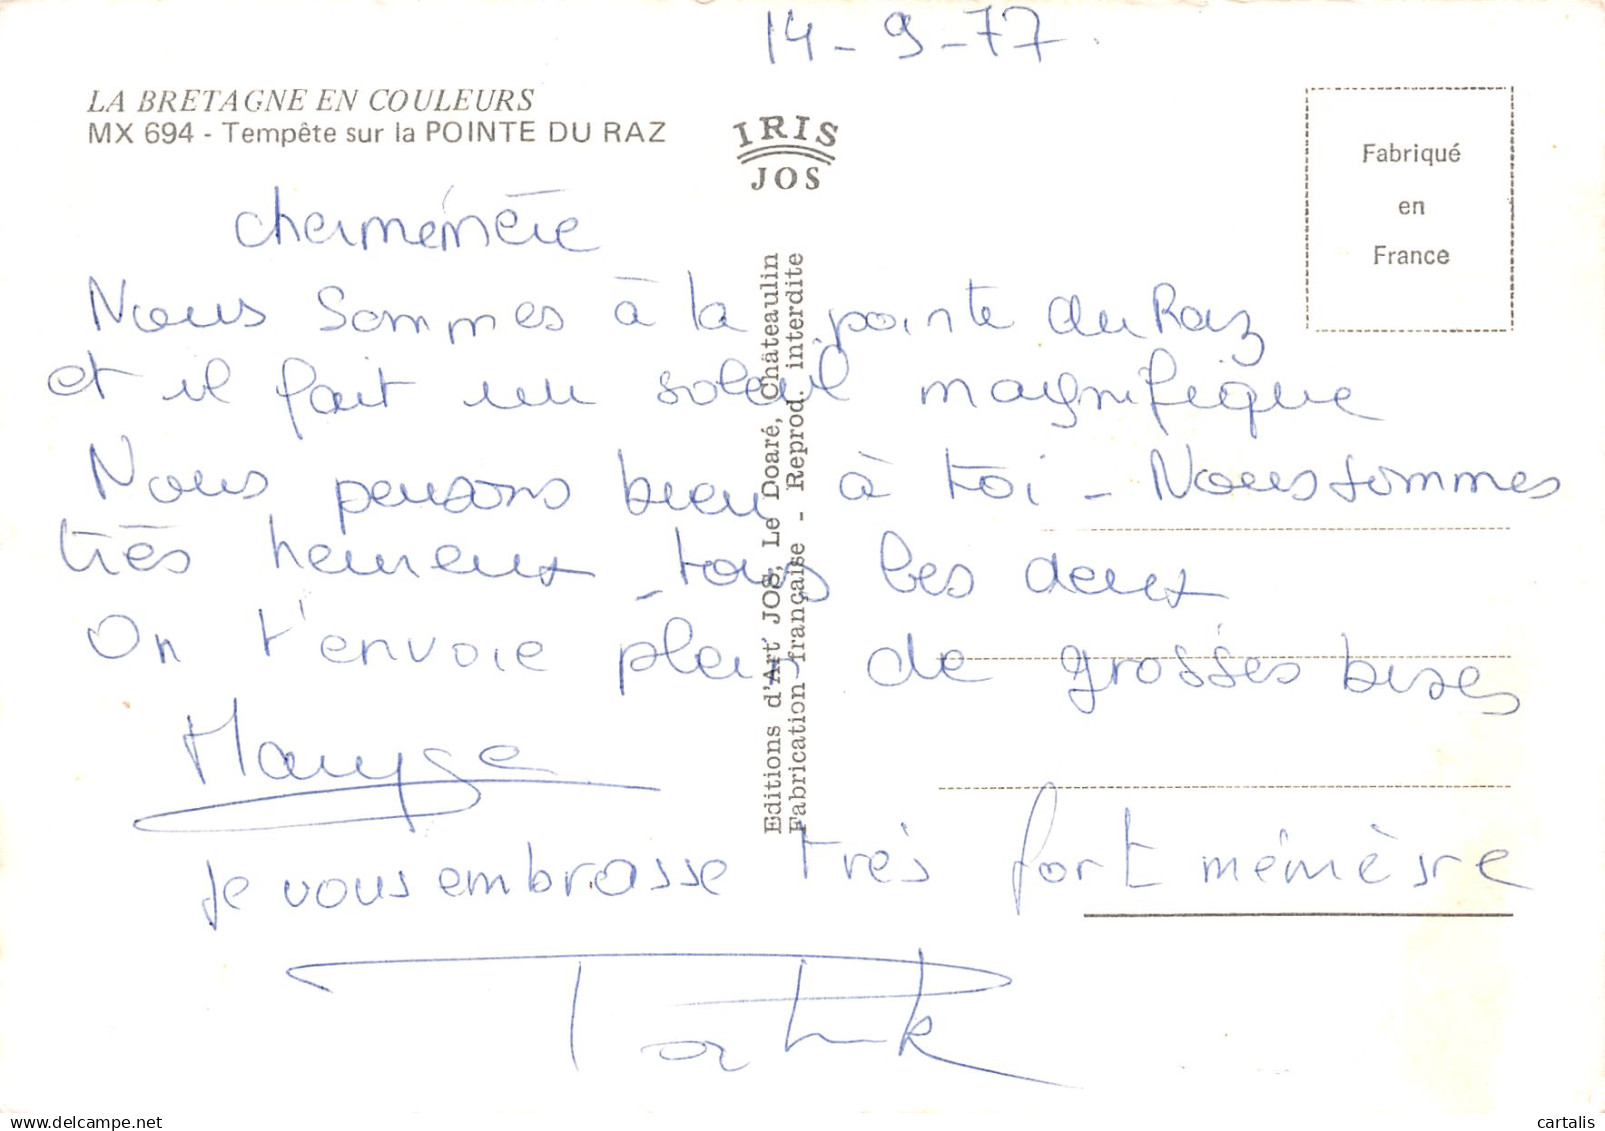 14-9-77.
LA BRETAGNE EN COULEURS
MX 694 - Tempête sur la POINTE DU RAZ
IRIS
JOS
Fabriqué
en
France
Editions d'Art JOS, Le Doaré, Châteaulin
Fabrication française - Reprod. interdite
cher mémère
Nous sommes à la pointe du Raz
et il fait un soleil magnifique
Nous pensons bien à toi - Nous sommes
très heureux tous les deux
On t'envoie plein de grosses bises
Maryse
Je vous embrasse très fort mémère
cartalis